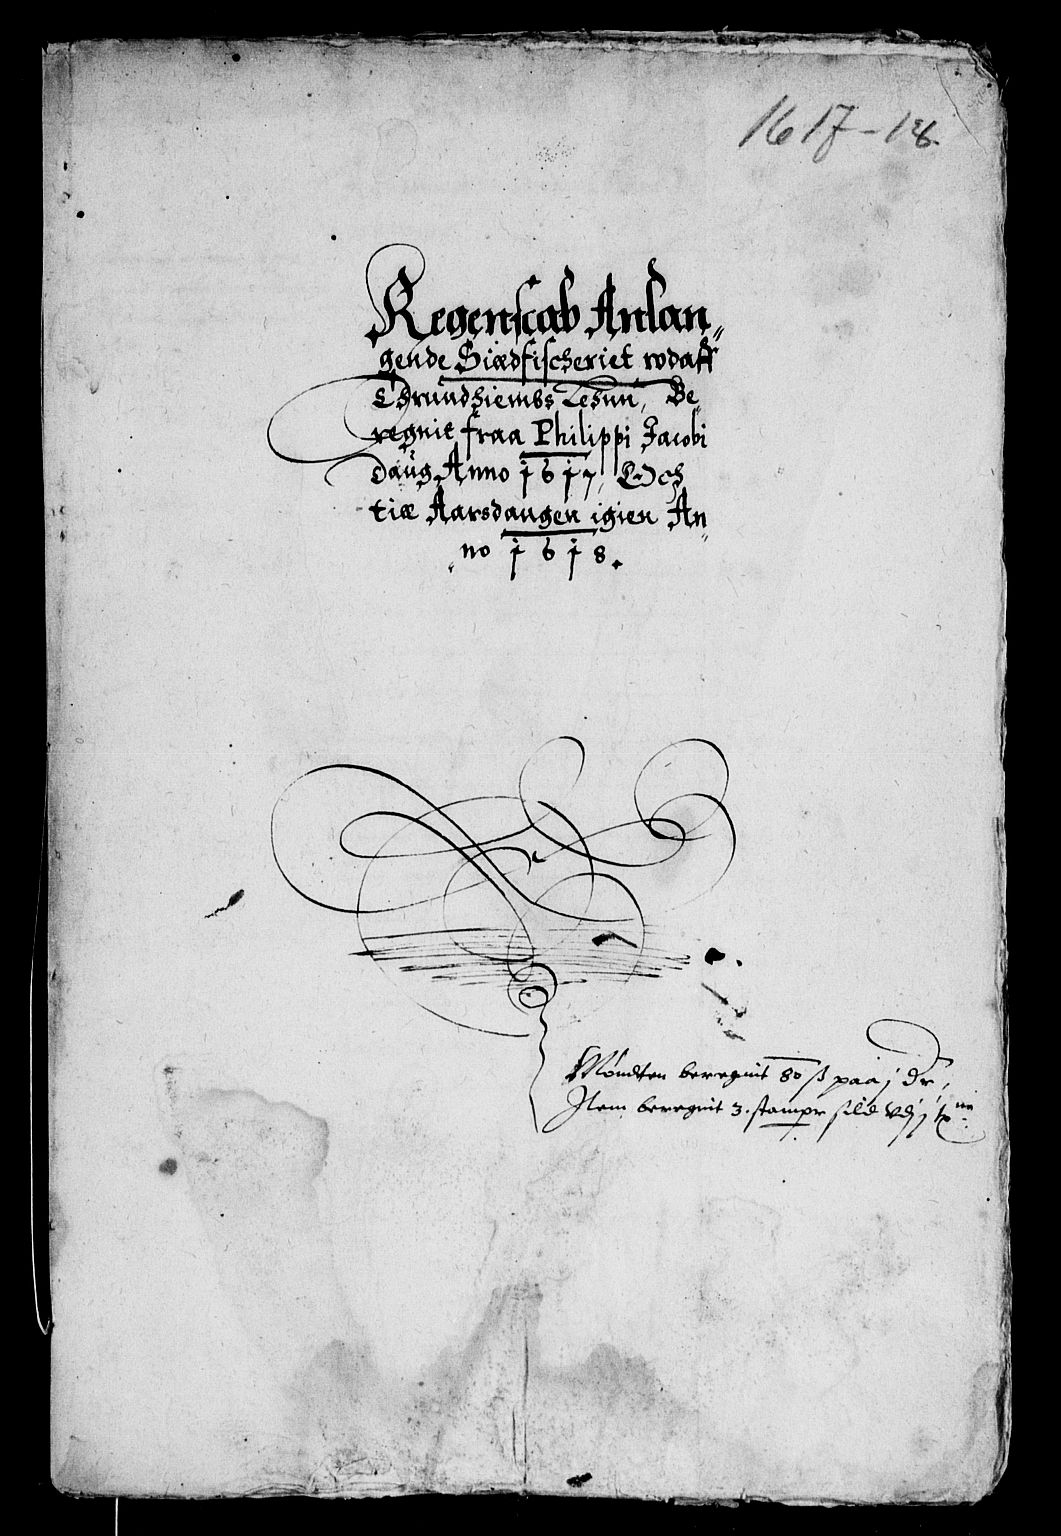 1617-18.
Regenscab Anlan„
gende Siædfischeriet vdaff
Thrundhiembs Lehnn, Be„
regnit fraa Philippi Jacobi
daug Anno 1617, Och
till Aarsdaugen igien An„
no 1618.
Møndten beregnit 80 ß paa j dr,
Item beregnit 3. stampr sild vdj j tne